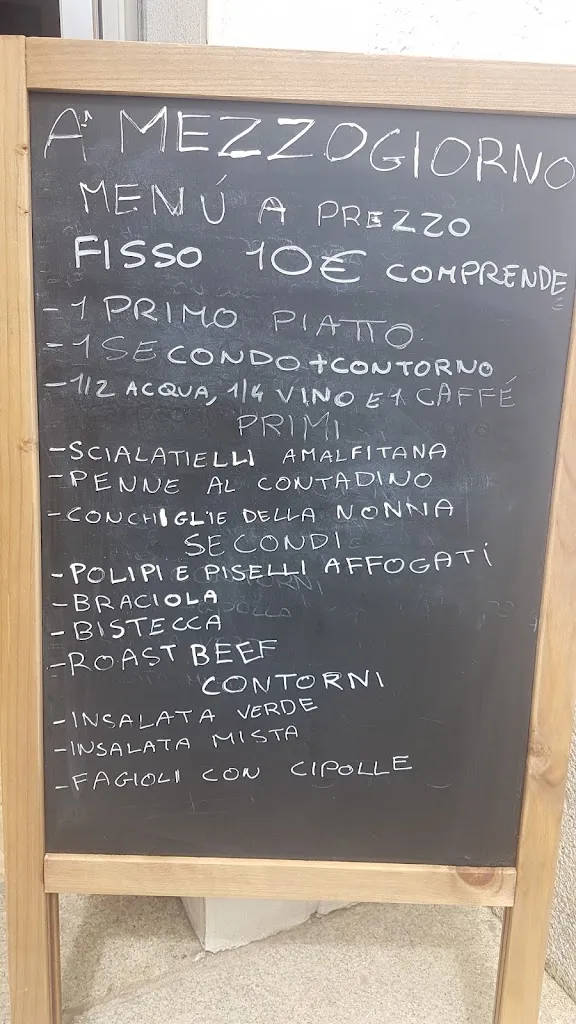 A' MEZZOGIORNO
MENÚ A PREZZO
FISSO 10€ COMPRENDE
- 1 PRIMO PIATTO
- 1 SECONDO + CONTORNO
- 1/2 ACQUA, 1/4 VINO E 1 CAFFÉ
PRIMI
- SCIALATIELLI AMALFITANA
- PENNE AL CONTADINO
- CONCHIGLIE DELLA NONNA
SECONDI
- POLIPI E PISELLI AFFOGATI
- BRACIOLA
- BISTECCA
- ROAST BEEF
CONTORNI
- INSALATA VERDE
- INSALATA MISTA
- FAGIOLI CON CIPOLLE